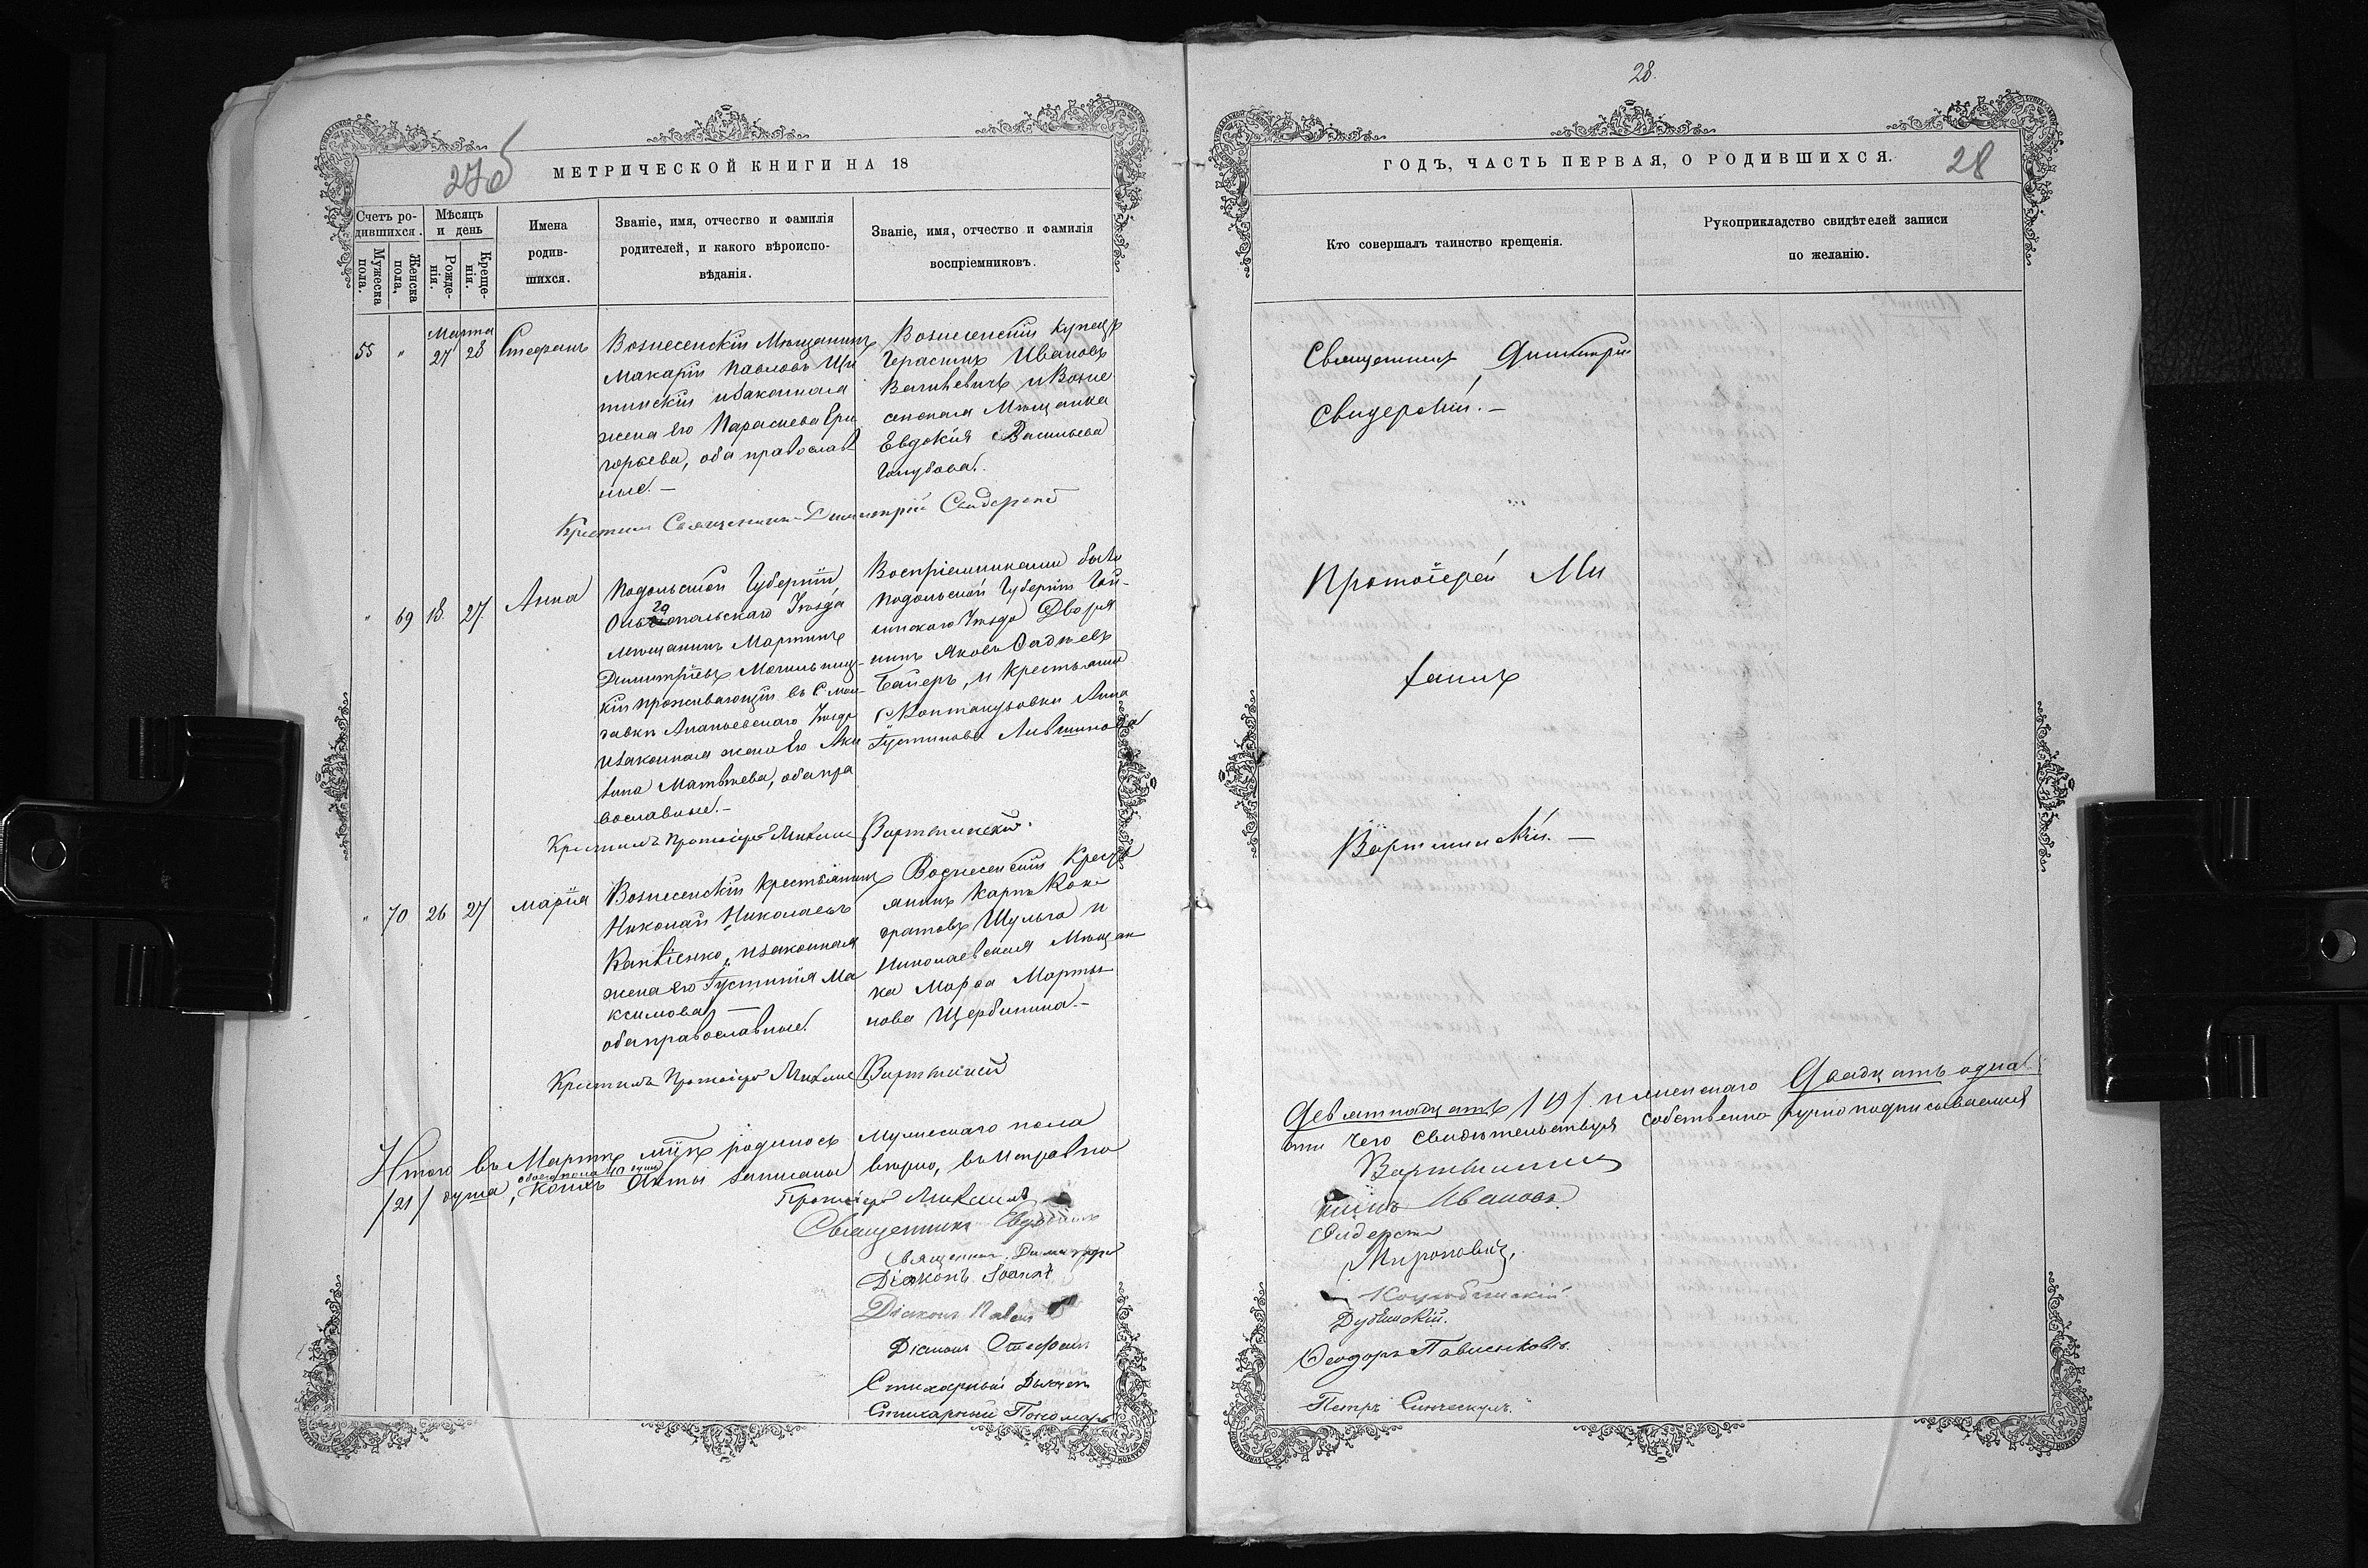 28.
27б
МЕТРИЧЕСКОЙ КНИГИ НА 18
Счетъ ро-
дившихся.
Мужеска
пола.
Женска
пола,
Мѣсяцъ
и день
Рожде-
нія.
Креще-
нія.
Имена
родив-
шихся.
Званіе, имя, отчество и фамилія
родителей, и какого вѣроиспо-
вѣданія.
Званіе, имя, отчество и фамилія
воспріемниковъ.
Марта
55 " 27 28 Стефанъ
Вознесенскій Мѣщанинъ
Макарій Павловъ Щи
тинскій и законная
жена его Параскева Гри
горьева, оба православ
ные.—
Вознесенскій купецъ
Герасимъ Ивановъ
и Возне
сенская Мѣщанка
Евдокія Васильева
Голубова.
Крестилъ Священникъ Димитрій Свидерскій
" 69 18. 27. Анна
Подольской Губерніи
Ольгопольскаго Уѣзда
мѣщанинъ Мартинъ
Димитріевъ
кій проживающій въ с.
Ананьевскаго Уѣзда
и законная жена его Аки
лина Матѳѣева, оба пра
вославные.—
Воспріемниками были
Подольской Губерніи Гай-
синскаго Уѣзда Дворя
нинъ Яковъ Фадѣевъ
Байеръ, и крестьянка
с. Контакузовки Анна
Густинова
Крестилъ Протоіерей Михаилъ Вартминскій.
" 70 26 27 Марія
Вознесенскій крестьянинъ
Николай Николаевъ
и законная
жена его Густинія Ма
ксимова,—
оба православные.
Вознесенскій Кресть
янинъ Карпъ Кон
дратовъ Шульга и
Николаевская Мѣщан
ка Марѳа Марты
нова Щербинина.—
Крестилъ Протоіерей Михаилъ Вартминскій
Итого въ Мартѣ мцѣ родилось Мужескаго пола
обоего пола 40 душъ
/21/ душа, коихъ Акты записаны вѣрно, въ исправно
Протоіерей Михаилъ
Священникъ
Священникъ Димитрій
Діаконъ Іоаннъ
Діаконъ Павелъ
Діаконъ Стефанъ
Стихарный Дьячекъ
Стихарный Пономарь
28
ГОДЪ, ЧАСТЬ ПЕРВАЯ, О РОДИВШИХСЯ.
Кто совершалъ таинство крещенія.
Рукоприкладство свидѣтелей записи
по желанію.
Священникъ Димитрій
Свидерскій.—
Протоіерей Ми
хаилъ
Вартминскій.—
Девятнадцать /19/ и женскаго Двадцать одна
сти чего свидѣтельствуя собственно ручно подписываемся
Вартминскій
Ивановъ.
Свидерскій
Мироновичъ,
Коцюбинскій
Дубинскій.
Ѳеодоръ Павленковъ.
Петръ